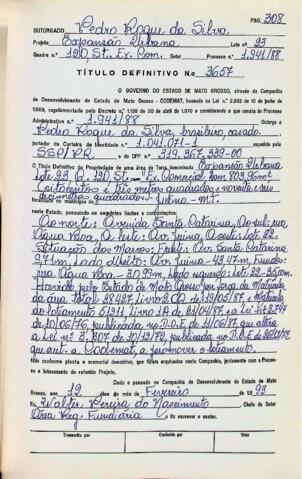 PÁG. 308
OUTORGADO Pedro Roque da Silva
Projeto Expansão Urbana Lote nº 23
Quadra n.º 120, St. Ex. Com. Setor Processo n.º 1.941/88
TÍTULO DEFINITIVO N.o 3657
O GOVERNO DO ESTADO DE MATO GROSSO, através da Companhia
de Desenvolvimento do Estado de Mato Grosso - CODEMAT, baseado na Lei n.º
regulamentada pelo Decreto n.º de 30 de abril de 1970 e considerando o que consta do Processo
Administrativo n.º 1.941/88
Pedro Roque da Silva, brasileiro, casado
portador da Carteira de Identidade n.º 1.041.071-1
SSP/PR e do CPF nº 319.367.339-00
o Título Definitivo de Propriedade de uma área de Terra, denominada Expansão Urbana
Lote 23, Q. 120, St. Ex. Comercial com 803,96m²
Oitocentos e três metros quadrados e noventa e seis
decímetros quadrados) Juína - MT.
neste Estado, possuindo os seguintes limites e confrontações:
Ao norte: Avenida Santa Catarina, Ao sul: rua
Água Boa, A leste: Av. Juína, A oeste: lote 22.
Situação dos Marcos: Frente: Av. Santa Catarina
9,71m, Lado direito: Av. Juína - 43,47m, Fundos:
rua Água Boa - 30,99m, Lado esquerdo: lote 22 - 35,00m.
Havido pelo Estado de Mato Grosso por força da Matrícula
da área total 28.427, livro 2
do loteamento 51.211, livro
10/06/76 publicada no D.O.E de que altera
a Lei nº 3.307 de 10/12/72, publicada no D.O.E de
que aut. a Codemat, a promover o loteamento.
tudo conforme planta e memorial descritivo, que foram arquivados nesta Companhia, juntamente com o Processo
e loteamento do referido Projeto.
Dado e passado na Companhia de Desenvolvimento do Estado de Mato
Grosso, aos 12 dias do mês de Fevereiro de 93
Eu, Walter Pereira do Nascimento Chefe do Setor
Área Reg. Fundiária o fiz escrever e assino.
Transcrito por
Conferido por
Visto